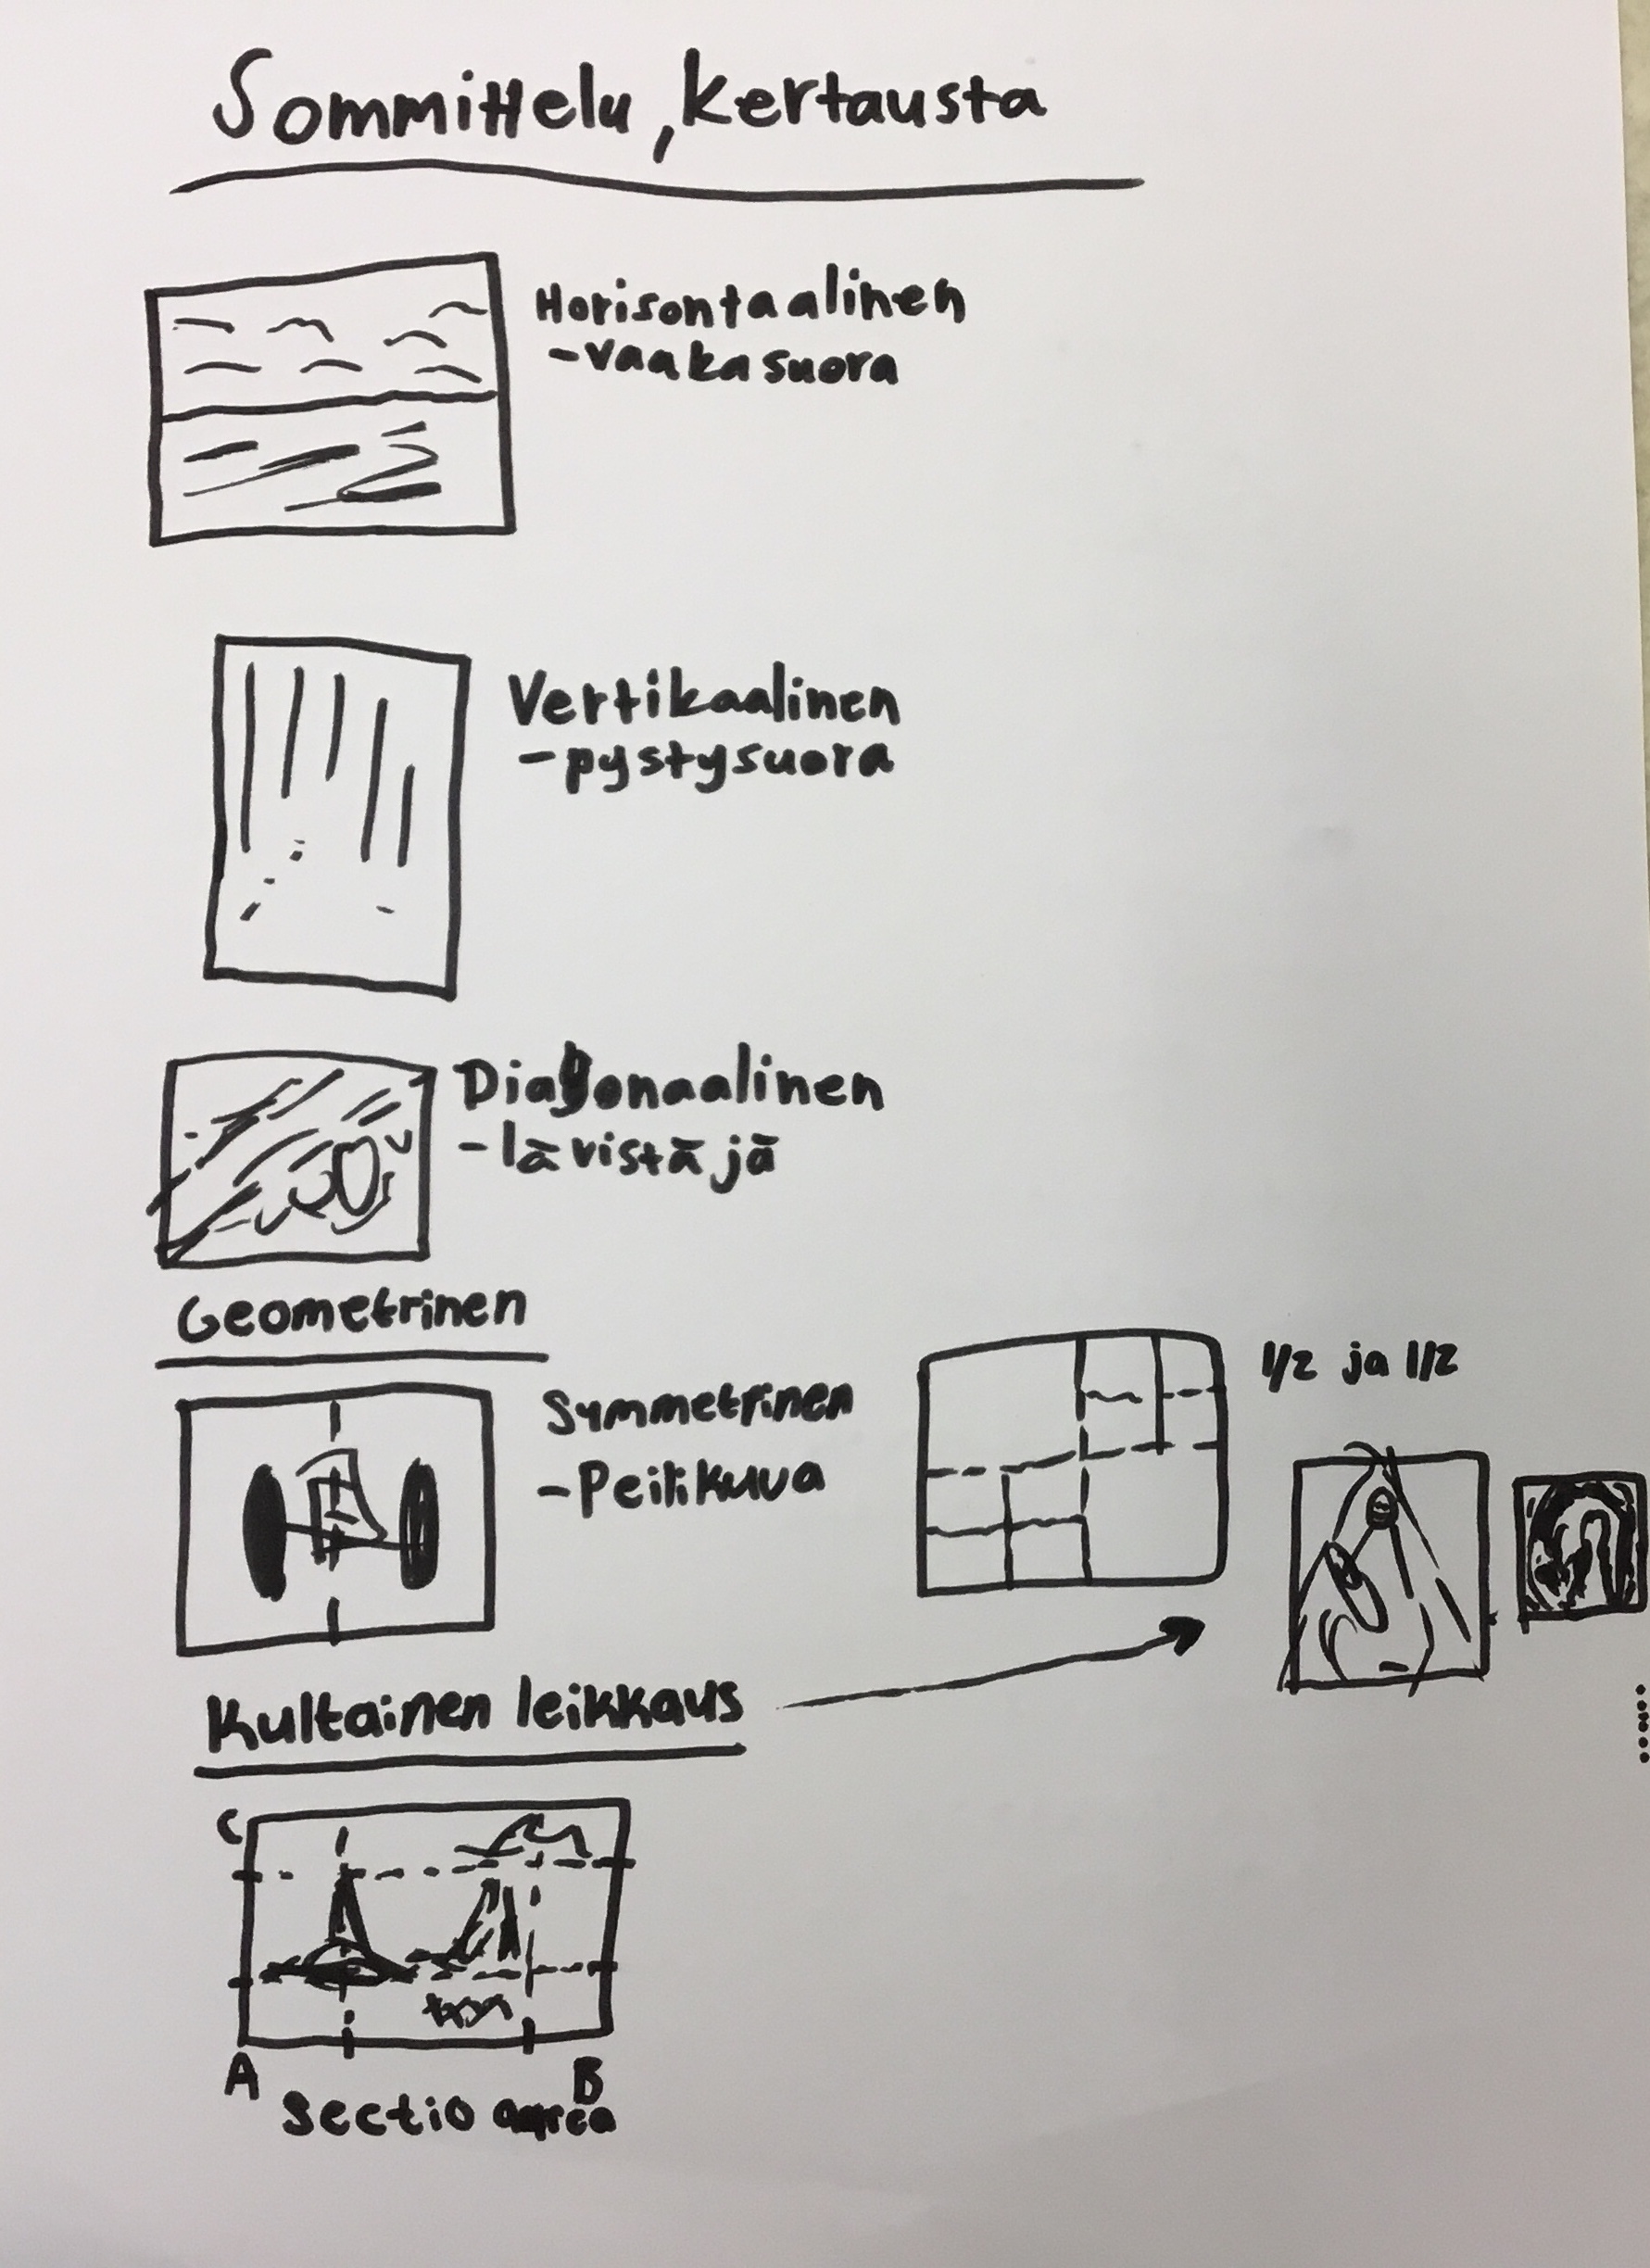 Sommittelu, kertausta
Horisontaalinen
-vaakasuora
Vertikaalinen
-pystysuora
Diagonaalinen
-lävistäjä
Geometrinen
Symmetrinen
-Peilikuva
1/2 ja 1/2
Kultainen leikkaus
C
A B
sectio aurea